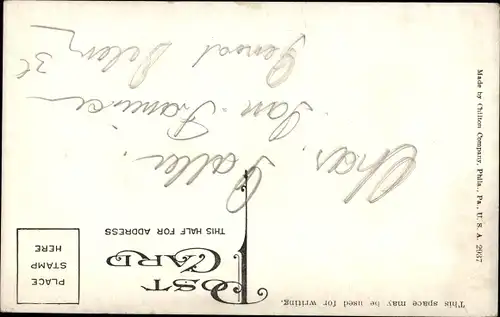 This space may be used for writing.
POST CARD
THIS HALF FOR ADDRESS
PLACE
STAMP
HERE
Chas.
San Francisco
Made by Chilton Company, Phila., Pa., U. S. A. 2937